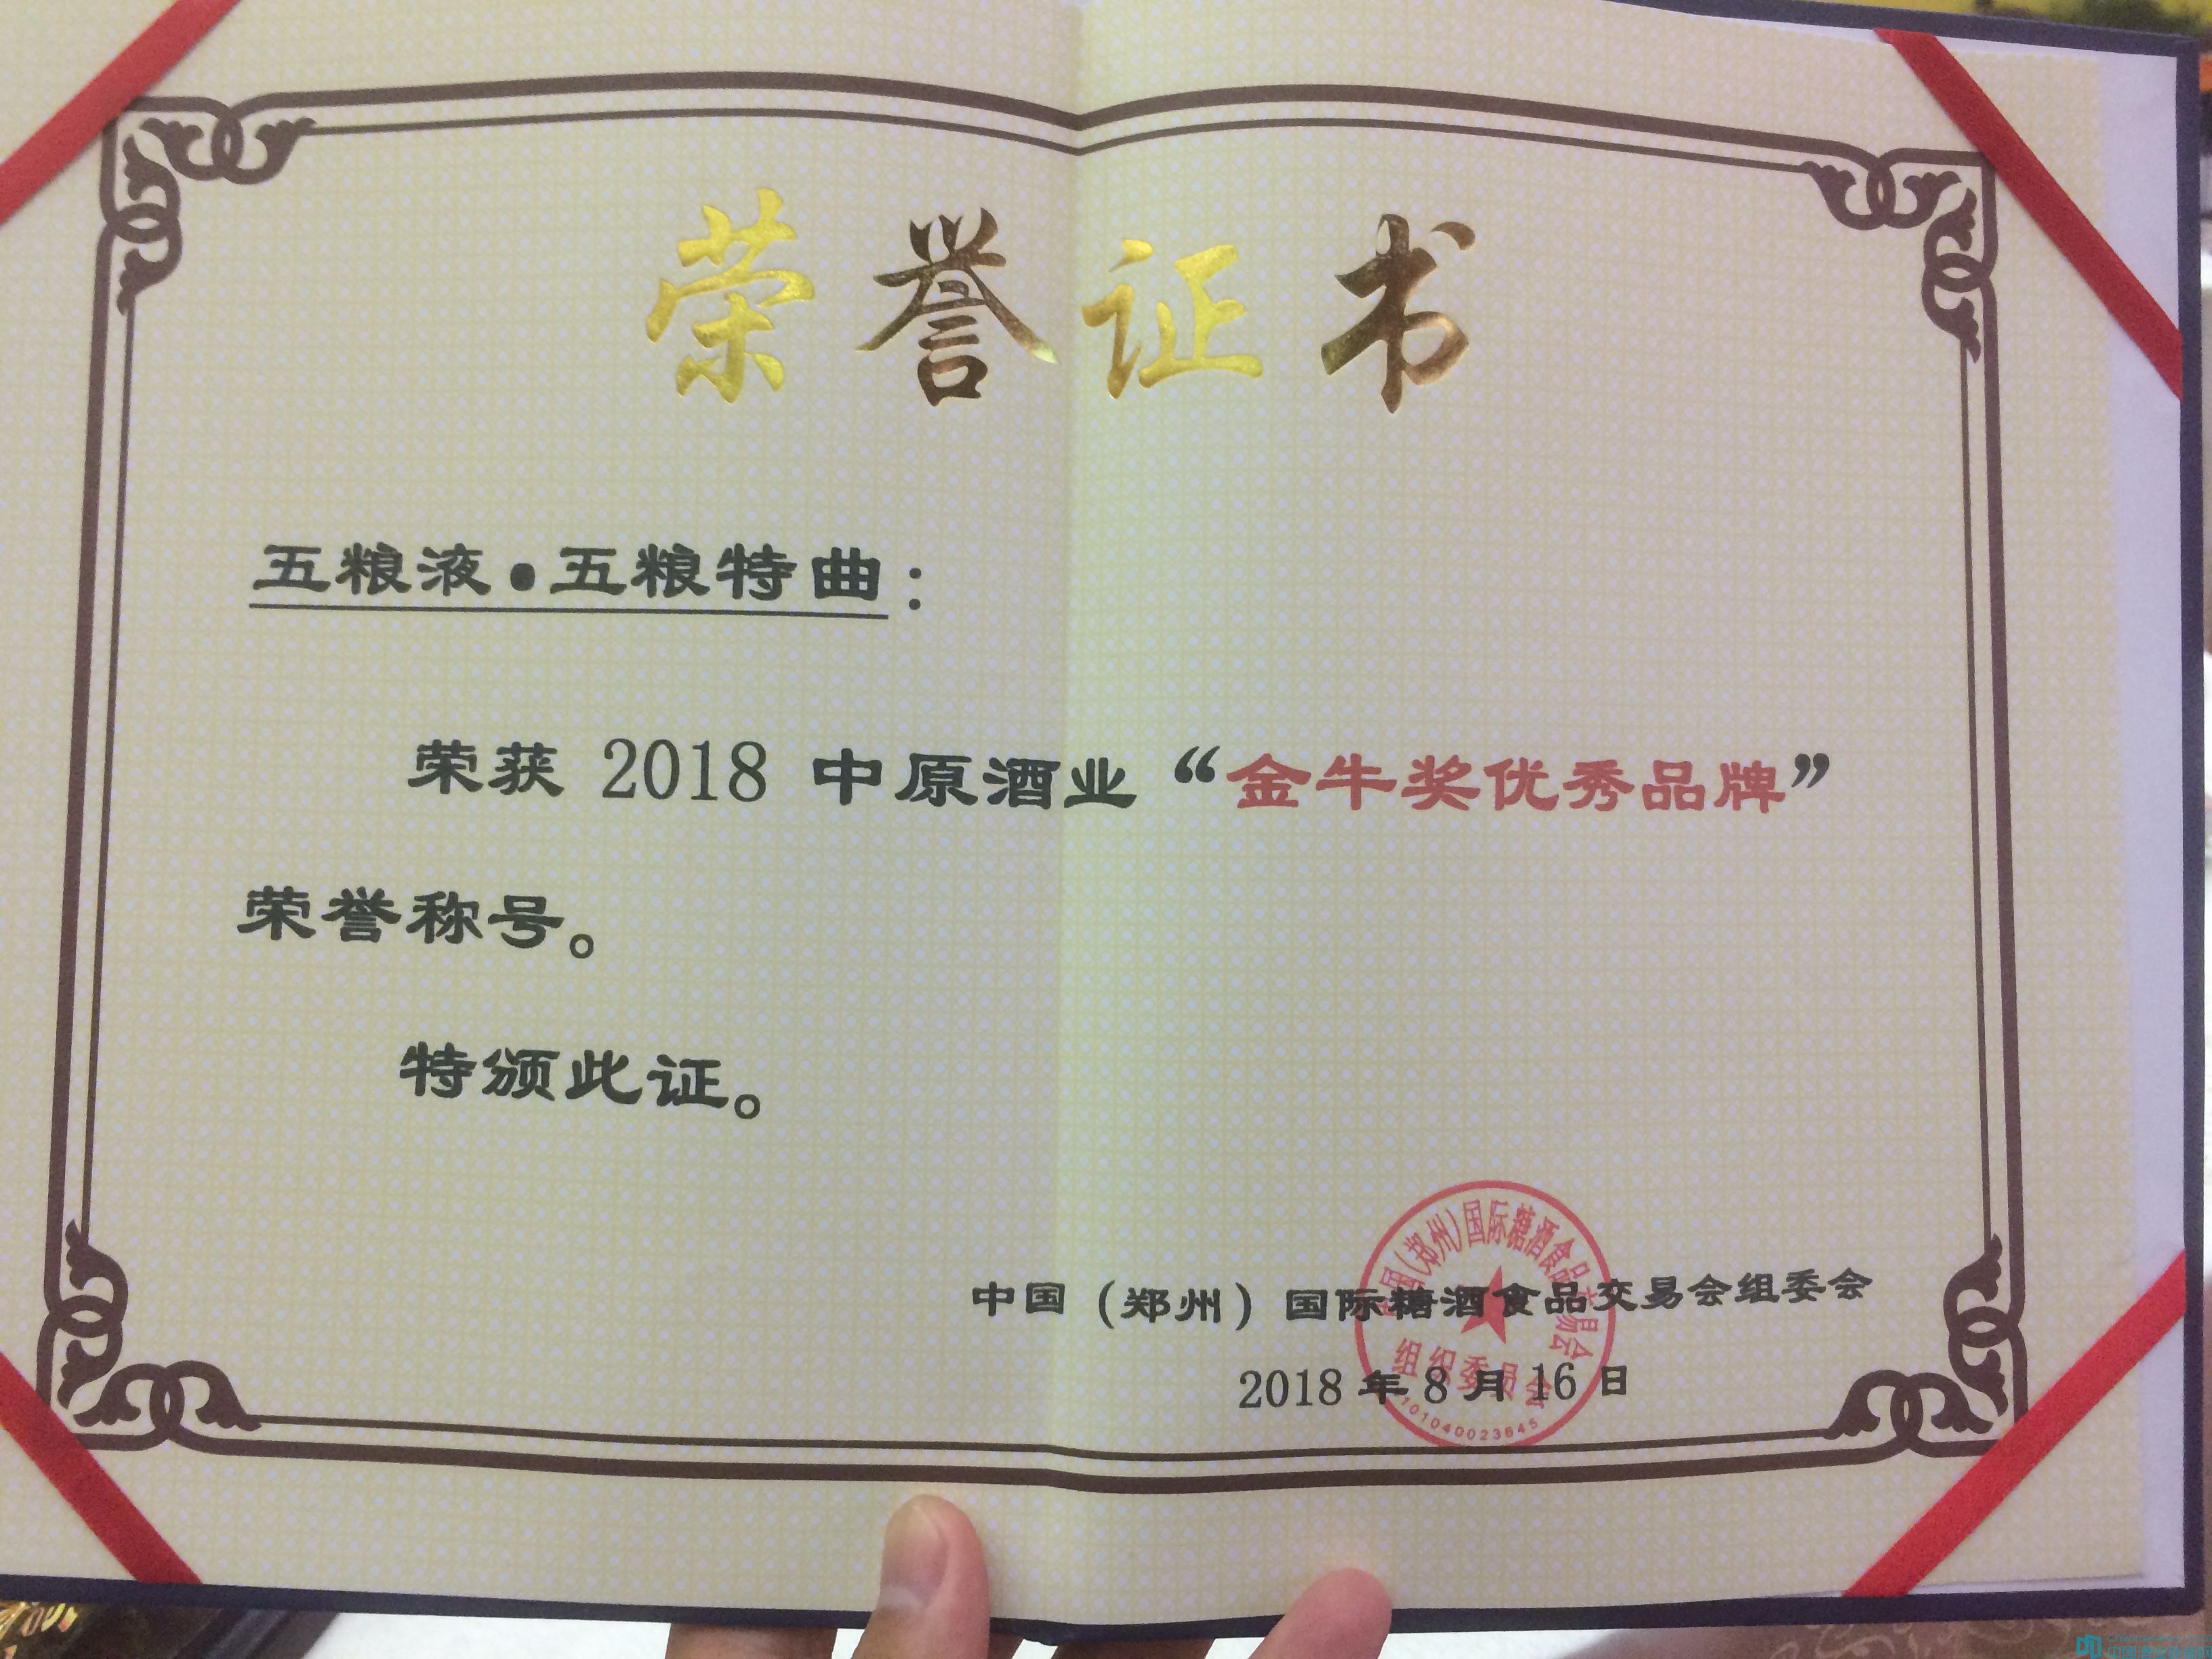 荣誉证书
五粮液·五粮特曲：
荣获 2018 中原酒业“金牛奖优秀品牌”
荣誉称号。
特颁此证。
中国（郑州）国际糖酒食品交易会组委会
2018 年 8 月 16 日
国(郑州)国际糖酒食品交易会
组织委员会
101040023645